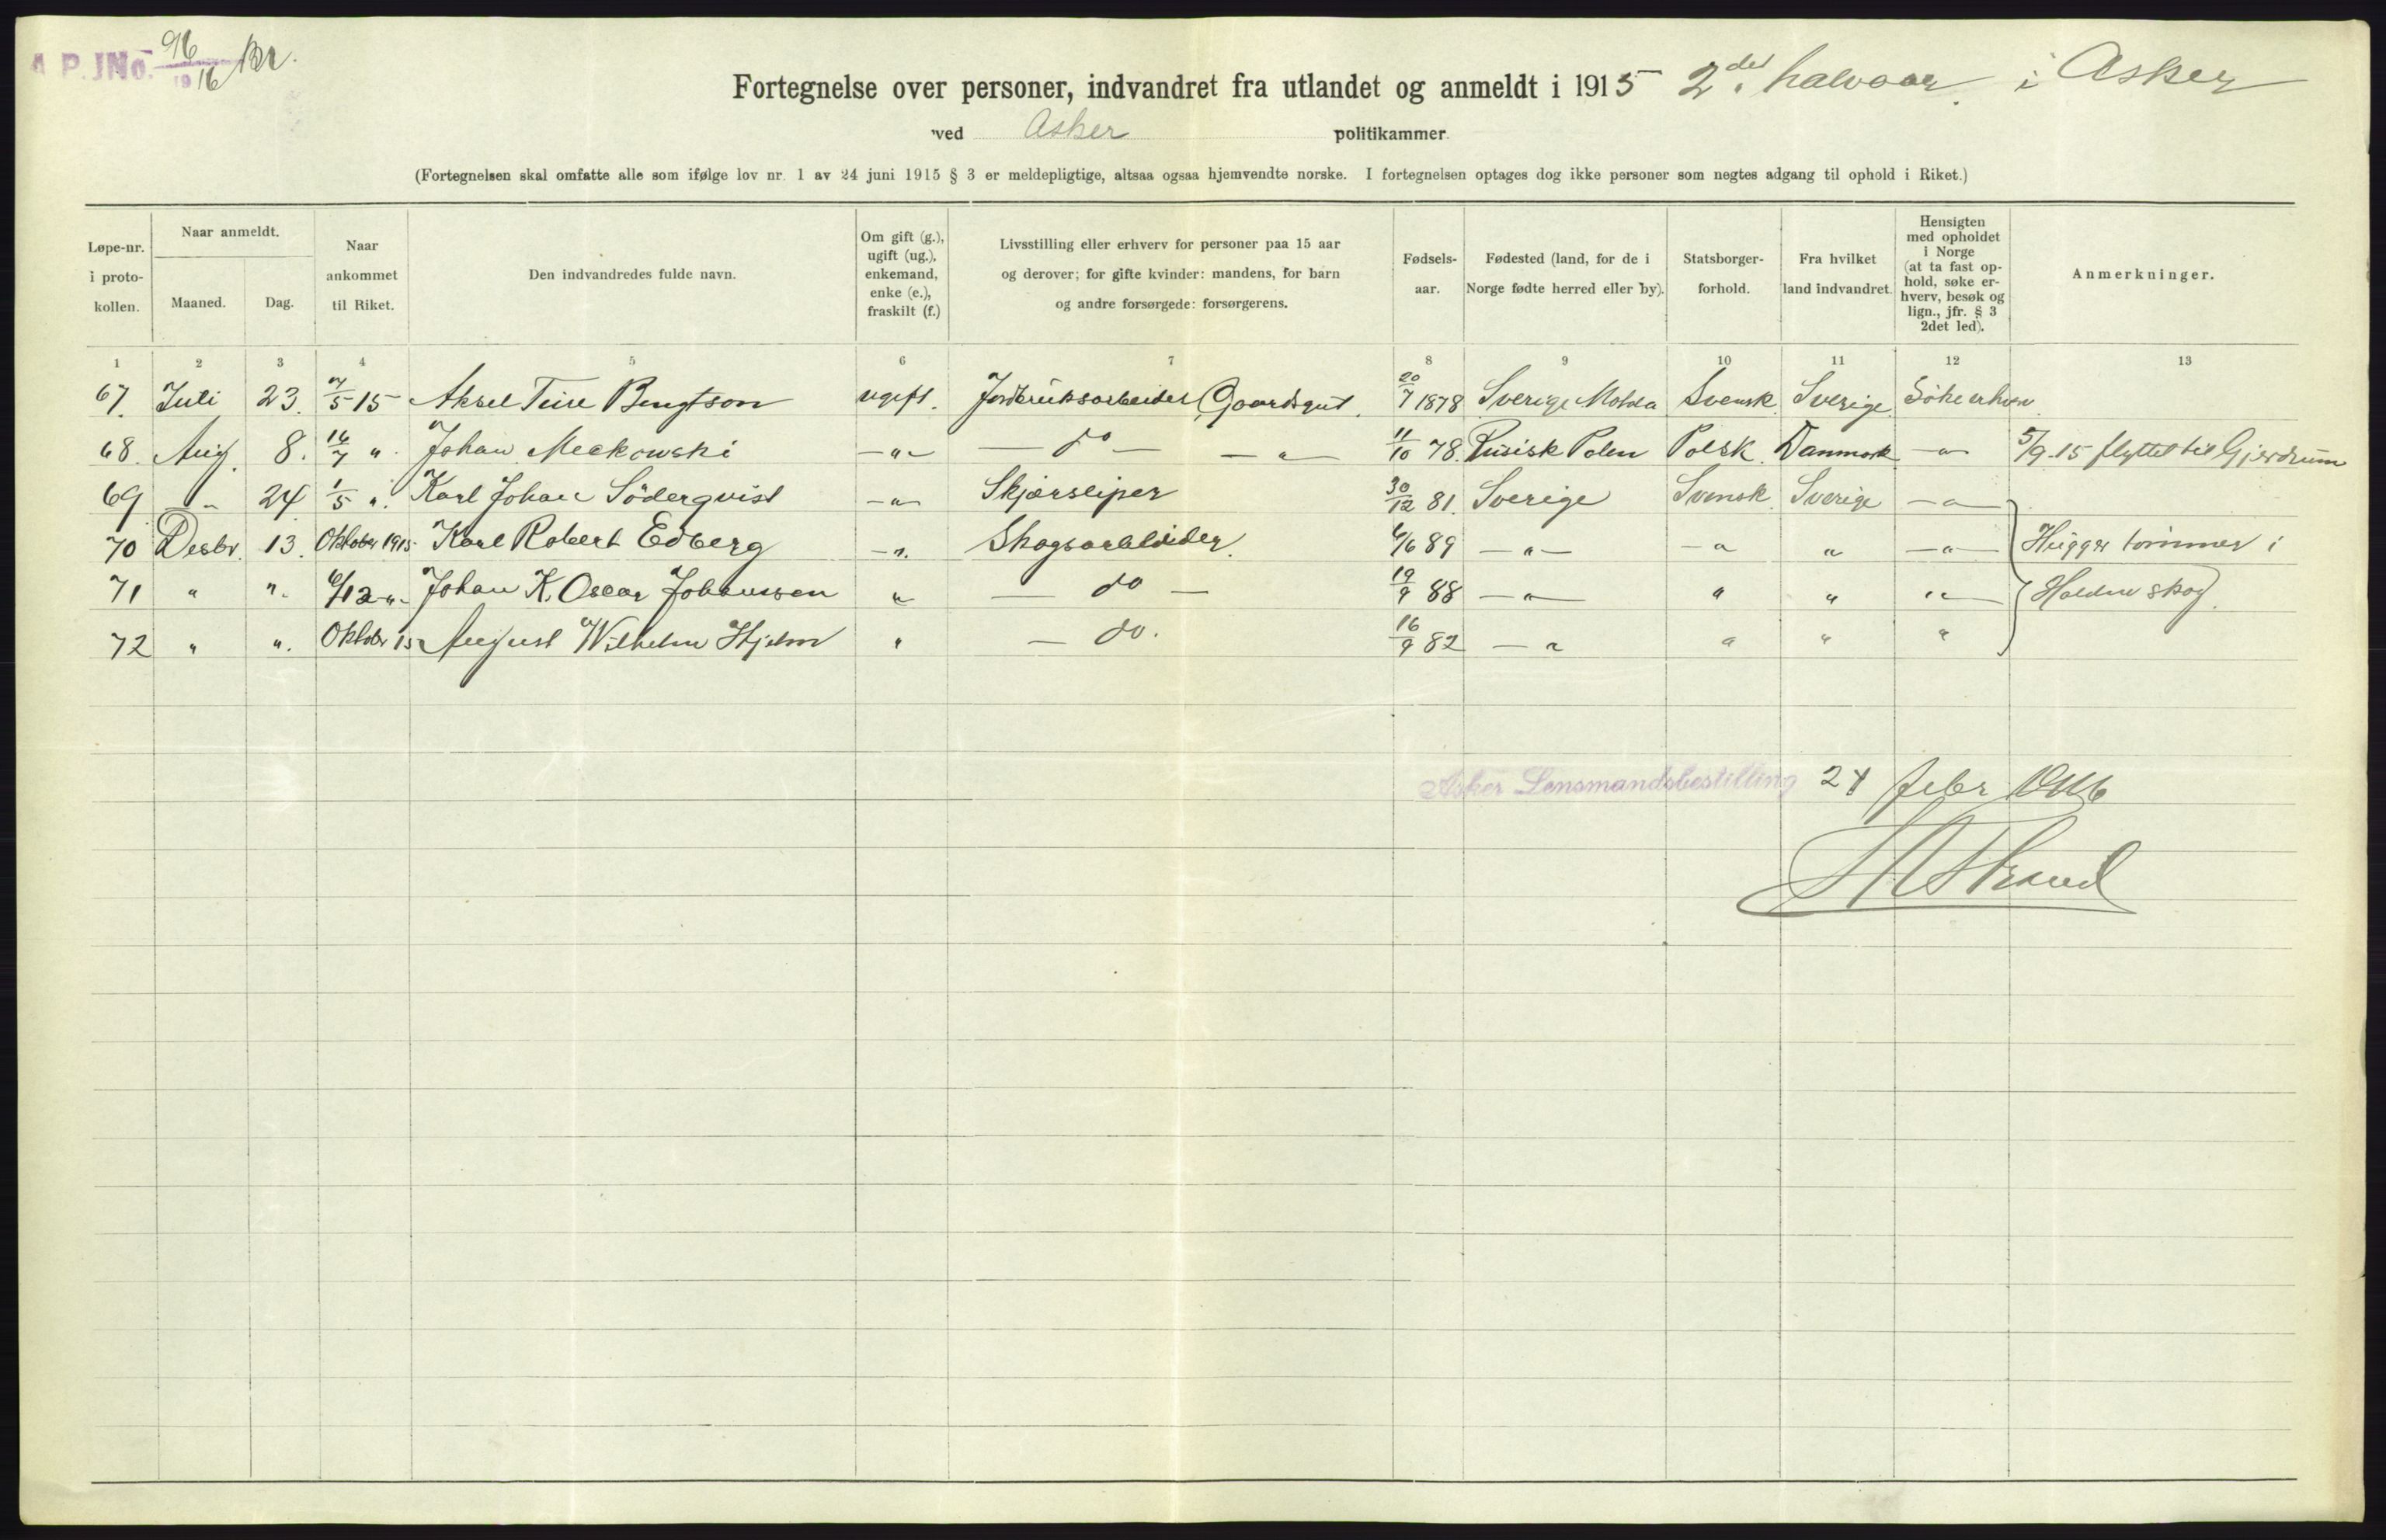 A P. JNo. 96/1916 Br.
Fortegnelse over personer, indvandret fra utlandet og anmeldt i 1915 2det halvaar i Asker
ved Asker politikammer.
(Fortegnelsen skal omfatte alle som ifølge lov nr. 1 av 24 juni 1915 § 3 er meldepligtige, altsaa ogsaa hjemvendte norske. I fortegnelsen optages dog ikke personer som negtes adgang til ophold i Riket.)
Løpe-nr. i proto-kollen. Naar anmeldt. Maaned. Dag. Naar ankommet til Riket. Den indvandredes fulde navn. Om gift (g.), ugift (ug.), enkemand, enke (e.), fraskilt (f.) Livsstilling eller erhverv for personer paa 15 aar og derover; for gifte kvinder: mandens, for barn og andre forsørgede: forsørgerens. Fødsels-aar. Fødested (land, for de i Norge fødte herred eller by). Statsborger-forhold. Fra hvilket land indvandret. Hensigten med opholdet i Norge (at ta fast op-hold, søke er-hverv, besøk og lign., jfr. § 3 2det led). Anmerkninger.
1 2 3 4 5 6 7 8 9 10 11 12 13
67. Juli 23. 7/5 15 Aksel Bengtson ugift. Jordbruksarbeider Gaardsgut. 20/7 1878 Sverige Svensk Sverige Söke erhverv
68. Aug. 8. 16/7 " Johan Meckowski - " - - do - - " - 11/10 78. Rusisk Polen Polsk Danmark - " - 5/9-15 flyttet til Gjerdrum
69 " 24 1/5 " Karl Johan Söderqvist - " - Skjærsliper 30/12 81. Sverige Svensk Sverige - " -
70 Desbr. 13. Oktober 1915 Karl Robert Edberg - " Skogsarbeider 6/6 89 - " - - " " - " - Hugger tømmer i
71 " " 6/12 " Johan K. Oscar Johanssen " - do - 19/9 88 - " - " " " - skog.
72 " " Oktober 15 August Wilhelm Hjelm " - do. 16/9 82 - " " " "
Asker Lensmandsbestilling 24 febr 1916